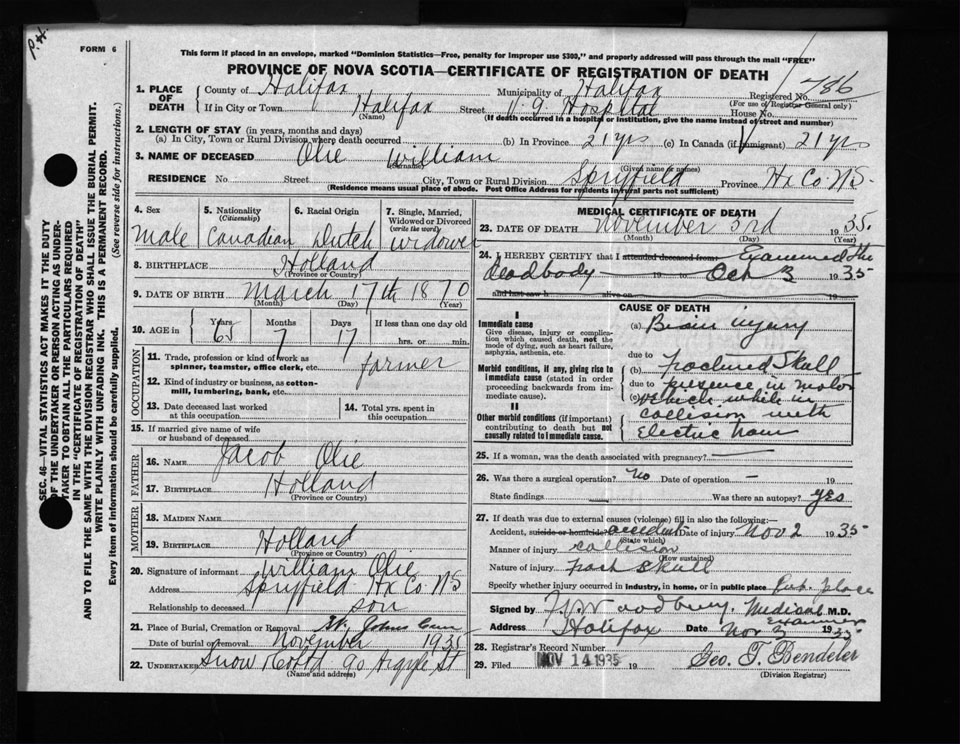 P.H.
FORM 6
This form if placed in an envelope, marked "Dominion Statistics—Free, penalty for improper use $300," and properly addressed will pass through the mail "FREE"
PROVINCE OF NOVA SCOTIA—CERTIFICATE OF REGISTRATION OF DEATH
SEC. 46—VITAL STATISTICS ACT MAKES IT THE DUTY
OF THE UNDERTAKER OR PERSON ACTING AS UNDER-
TAKER TO OBTAIN ALL THE PARTICULARS REQUIRED
IN THE "CERTIFICATE OF REGISTRATION OF DEATH"
AND TO FILE THE SAME WITH THE DIVISION REGISTRAR WHO SHALL ISSUE THE BURIAL PERMIT.
WRITE PLAINLY WITH UNFADING INK. THIS IS A PERMANENT RECORD.
Every item of information should be carefully supplied. (See reverse side for instructions.)
1. PLACE OF DEATH County of Halifax Municipality of Halifax Registered No. 786
(For use of Registrar General only)
If in City or Town Halifax Street V. G. Hospital House No.
(Name) (If death occurred in a hospital or institution, give the name instead of street and number)
2. LENGTH OF STAY (in years, months and days)
(a) In City, Town or Rural Division where death occurred (b) In Province 21 yrs (c) In Canada (if immigrant) 21 yrs
3. NAME OF DECEASED Olie William
(Surname) (Given name or names)
RESIDENCE No. Street City, Town or Rural Division Spryfield Province Hx Co. N.S.
(Residence means usual place of abode. Post Office Address for residents in rural parts not sufficient)
4. Sex 5. Nationality (Citizenship) 6. Racial Origin 7. Single, Married, Widowed or Divorced (write the word)
Male Canadian Dutch widower
8. BIRTHPLACE Holland
(Province or Country)
9. DATE OF BIRTH March 17th 1870
(Month) (Day) (Year)
10. AGE in Years Months Days If less than one day old
65 7 17 hrs. or min.
OCCUPATION
11. Trade, profession or kind of work as spinner, teamster, office clerk, etc. farmer
12. Kind of industry or business, as cotton-mill, lumbering, bank, etc.
13. Date deceased last worked at this occupation 14. Total yrs. spent in this occupation
15. If married give name of wife or husband of deceased
FATHER
16. NAME Jacob Olie
17. BIRTHPLACE Holland
(Province or Country)
MOTHER
18. MAIDEN NAME
19. BIRTHPLACE Holland
(Province or Country)
20. Signature of informant William Olie
Address Spryfield Hx Co. N.S
Relationship to deceased son
21. Place of Burial, Cremation or Removal St. Johns Cem
Date of burial or removal November 1935
22. UNDERTAKER Snow & Co Ltd 90 Argyle St
(Name and address)
MEDICAL CERTIFICATE OF DEATH
23. DATE OF DEATH November 3rd 1935.
(Month) (Day) (Year)
24. I HEREBY CERTIFY that I attended deceased from Examined the
dead body 19 to Oct 3 1935
and last saw h alive on 19
CAUSE OF DEATH
I
Immediate cause
Give disease, injury or complication which caused death, not the mode of dying, such as heart failure, asphyxia, asthenia, etc.
(a) Brain injury
due to
Morbid conditions, if any, giving rise to immediate cause (stated in order proceeding backwards from immediate).
(b) Fractured Skull
due to presence in motor
(c) vehicle while in
II
Other morbid conditions (if important) contributing to death but not causally related to immediate cause.
collision with
Electric tram
25. If a woman, was the death associated with pregnancy?
26. Was there a surgical operation? No Date of operation — 19
State findings Was there an autopsy? yes
27. If death was due to external causes (violence) fill in also the following:—
Accident, suicide or homicide accident Date of injury Nov 2 1935
(State which)
Manner of injury collision
(How sustained)
Nature of injury Fract Skull
Specify whether injury occurred in industry, in home, or in public place Pub. place
Signed by Woodbury. Medical Examiner M.D.
Address Halifax Date Nov 3 1935
28. Registrar's Record Number
29. Filed NOV 14 1935 19 Geo. T. Bendeler
(Division Registrar)